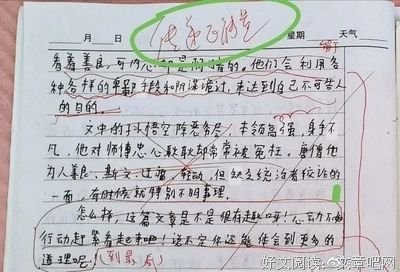 传递正能量
月 日 星期 天气
看着善良,可内心却是阴暗的。他们会利用各
种各样的卑鄙手段和阴谋诡计,来达到自己不可告人
的目的。
文中的孙悟空降妖除怪,本领高强,身手不
凡,他对师傅忠心耿耿却常常被冤枉。唐僧他
为人善良、斯文、但缺乏统
一面,有时候就特别不明事理。
怎么样,这篇文章是不是很有趣呀!心动不如
行动赶紧看起来吧!说不定你还能体会到更多的
道理呢!(到最后)
好文阅读: 文章吧网